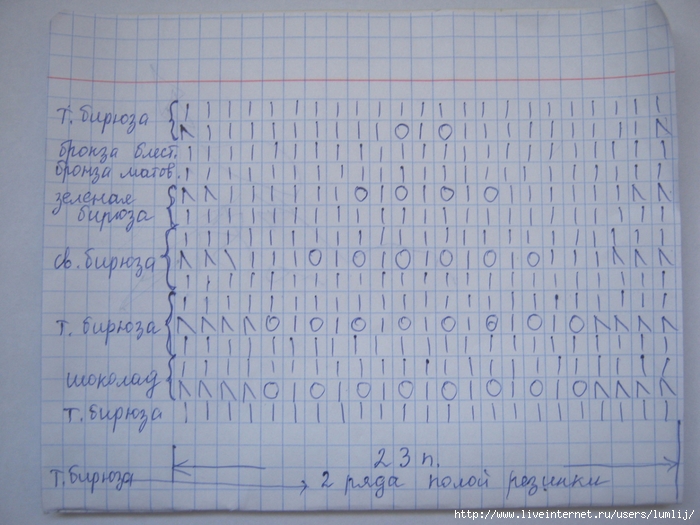 т. бирюза
бронза блест.
бронза матов.
зеленая
бирюза
св. бирюза
т. бирюза
шоколад
т. бирюза
23 п.
т. бирюза
2 ряда полой резинки
http://www.liveinternet.ru/users/lumlij/